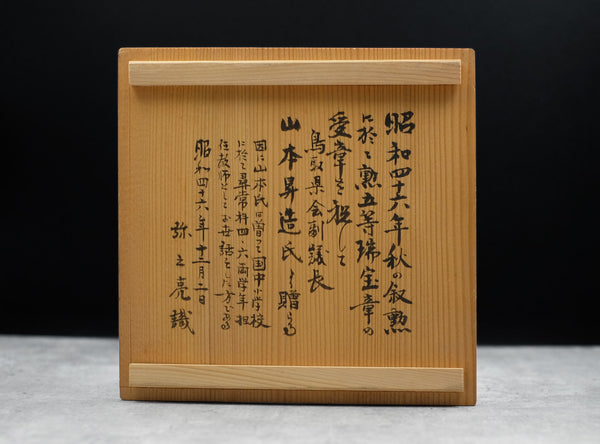 昭和四十六年秋の叙勲
に於て勲五等瑞宝章の
受章を祝して
鳥取県会副議長
山本昇造氏より贈らる
因に山本氏は曽つて国中小学校
に於て尋常科四、六両学年担
任教師としてお世話をした方である
昭和四十六年十二月二日
弥之亮識